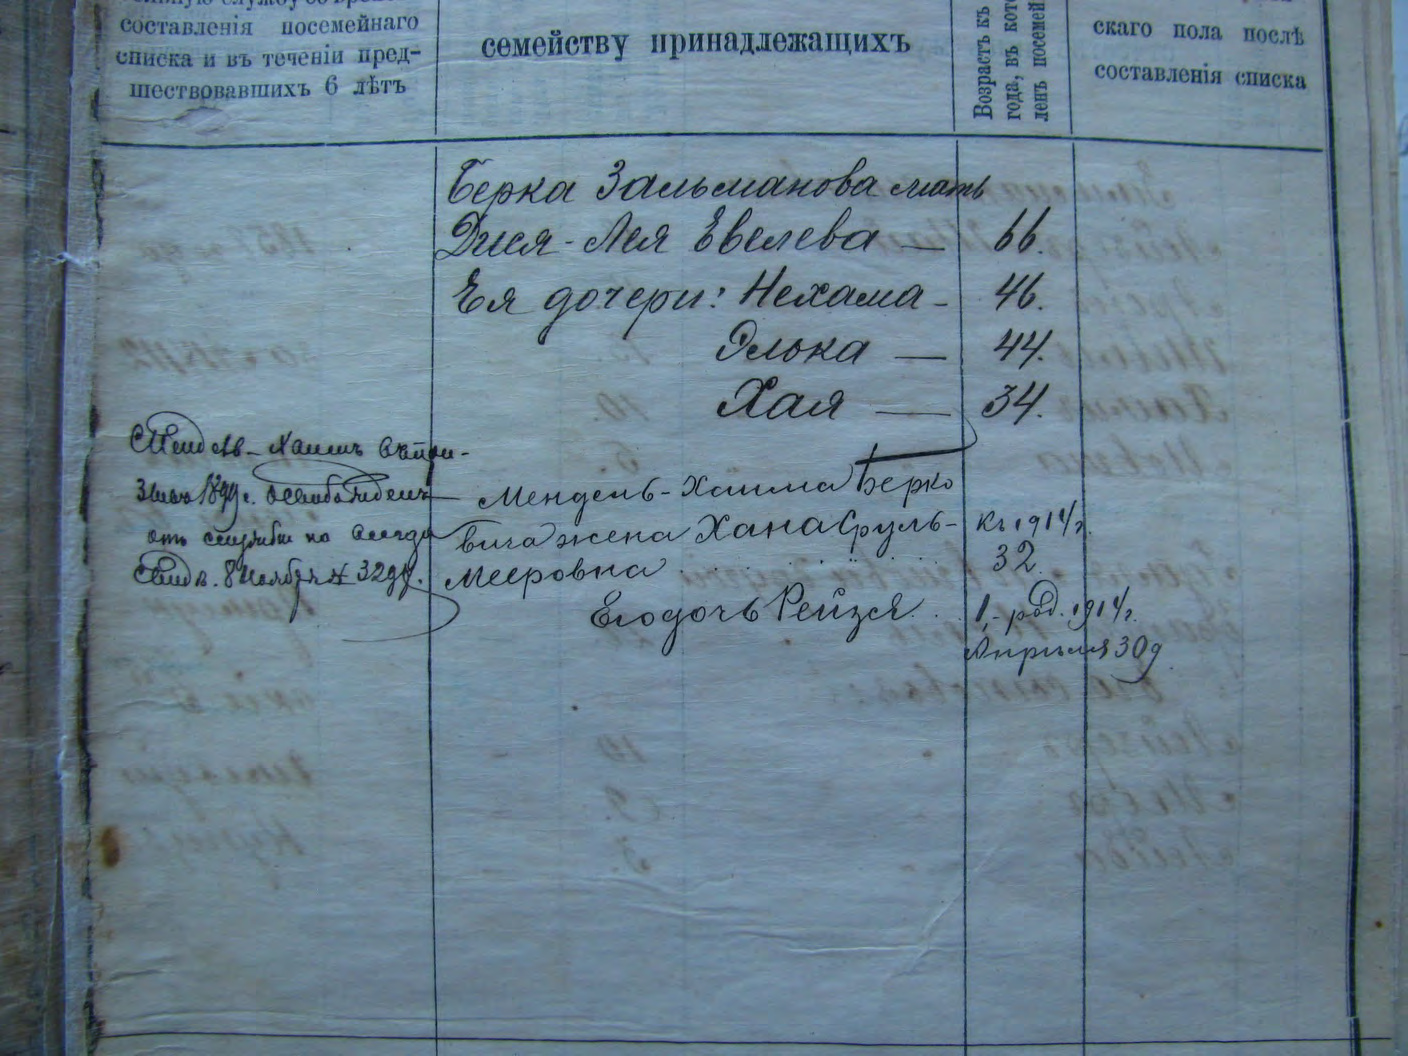 составленія посемейнаго
списка и въ теченіи пред-
шествовавшихъ 6 лѣтъ
семейству принадлежащихъ
Возрастъ къ
года, въ кото
ленъ посемей
скаго пола послѣ
составленія списка
Берка Зальманова мать
Двися-Лея Евелева — 66.
Ея дочери: Нехама - 46.
Элька — 44.
Хая — 34.
Мендель-Хаимъ
1899 г.
отъ службы по
8 Ноября № 329
Мендель-Хаима Берко
вича жена Хана Сруль-
Мееровна
къ 1914 г.
32
Его дочь Рейзся
1, - род. 1914 г.
Апрѣля 30 д